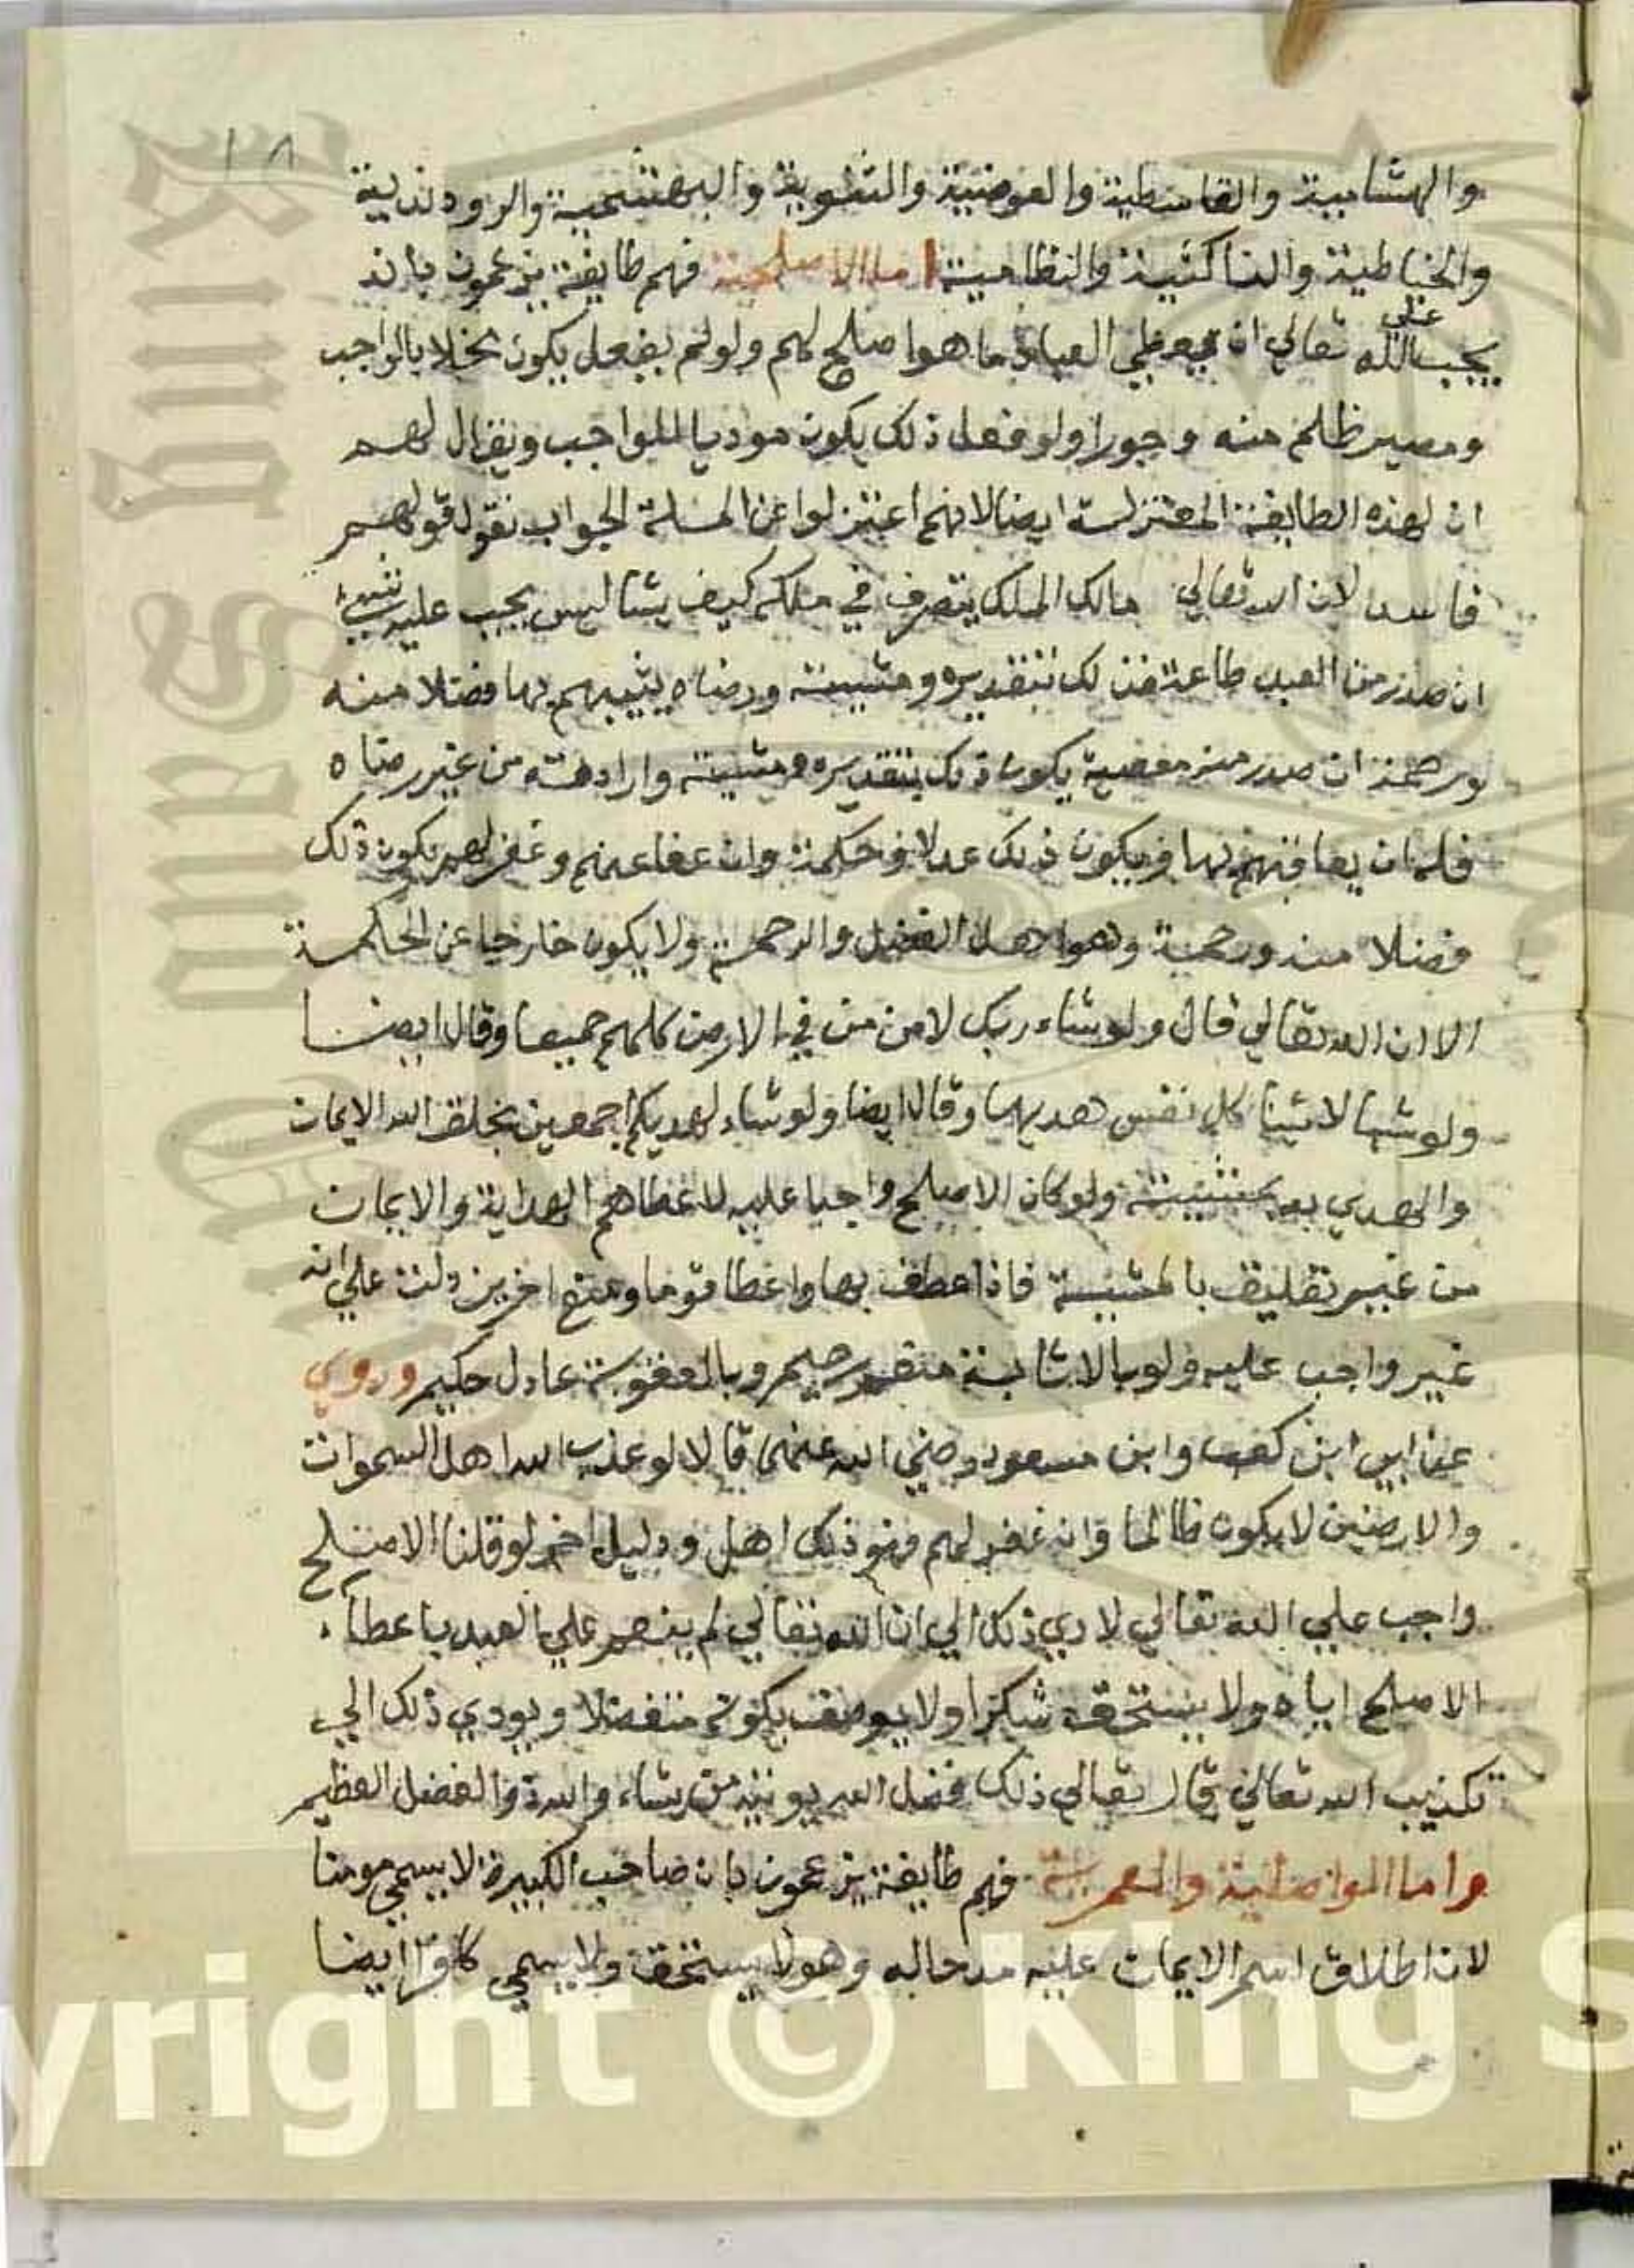 ١٨
والهشامية والقاسطية والعوضية والثنوية والبهشمية والروندية
والخياطية والناكثية والنظامية اما الاصلحية فهم طايفة يزعمون بانه
يجب على الله تعالي ان يعطي العباد ما هو اصلح لهم ولو لم يفعل يكون بخلا بالواجب
ومصير ظلم منه وجورا ولو فعل ذلك يكون موديا للواجب ويقال لهم
ان لهذه الطايفة المعتزلة ايضا لانهم اعتزلوا عن المسلة الجواب نقول قولهم
فاسد لان الله تعالي مالك الملك يتصرف في ملكه كيف يشا ليس يجب عليه شيء
ان صدر من العبد طاعة فذلك بتقديره ومشيته ورضاه يثيبهم بها فضلا منه
ورحمة ان صدر منه معصية يكون ذلك بتقديره ومشيته وارادته من غير رضاه
فله ان يعاقبهم بها فيكون ذلك عدلا وحكمة وان عفا عنهم وغفر لهم يكون ذلك
فضلا منه ورحمة وهو اهل الفضل والرحمة ولا يكون خارجا عن الحكمة
الا ان الله تعالي قال ولو شاء ربك لامن من في الارض كلهم جميعا وقال ايضا
ولو شينا لاتينا كل نفس هديها وقال ايضا ولو شاء لهديكم اجمعين بخلق الله الايمان
والهدي به بمشيته ولو كان الاصلح واجبا عليه لاعطاهم الهداية والايمان
من غير تعليق بالمشية فاذا عطف بها واعطا قوما ومنع اخرين دلت علي انه
غير واجب عليه ولو بالاثابة متفضل رحيم وبالعقوبة عادل حكيم وروي
عن ابي ابن كعب وابن مسعود رضي الله عنهما قالا لو عذب الله اهل السموات
والارضين لا يكون ظالما وان غفر لهم فهو ذلك اهل ودليل اخر لو قلنا الاصلح
واجب علي الله تعالي لادي ذلك الي ان الله تعالي لم ينعم علي العبد باعطاء
الاصلح اياه ولا يستحق شكرا ولا يوصف بكونه متفضلا ويودي ذلك الي
تكذيب الله تعالي قال تعالي ذلك فضل الله يوتيه من يشاء والله ذو الفضل العظيم
واما الواصلية والعمرية فهم طايفة يزعمون بان صاحب الكبيرة لا يسمي مومنا
لان اطلاق اسم الايمان عليه مدحاله وهو لا يستحق ولا يسمي كافرا ايضا
yright © King S